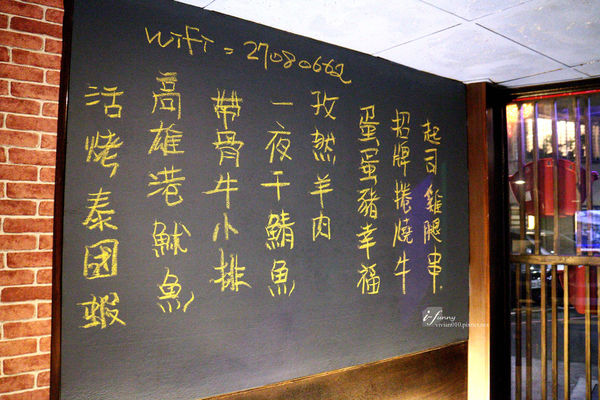 WiFi = 27080662
起司雞腿串.
招牌捲燒牛
蛋蛋豬幸福
孜然羊肉
一夜干鯖魚
帶骨牛小排
高雄港魷魚
活烤泰國蝦
i-funny
vivian010.pixnet.net